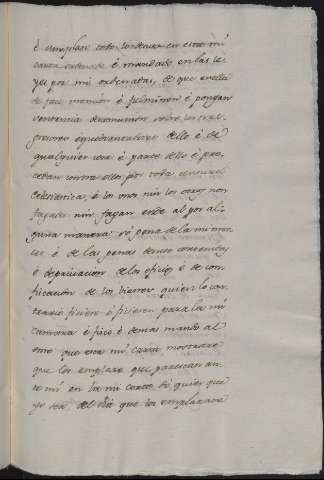 é cumplan todo lo demas en esta mi
carta contenido é mandado en las le
yes por mi ordenadas, de que en ella
se face mencion é fulminen é pongan
sentencia de excomunion sobre los trans
gresores é quebrantadores dello é de
qualquier cosa é parte dello é pro
cedan contra ellos por toda censura
eclesiastica, é los unos nin los otros non
fagades nin fagan ende al por al
guna manera, só pena de la mi mer
ced é de las penas de suso contenidas
é de privacion de los oficios é de con
fiscacion de los bienes quien lo con
trario ficiere é ficieren para la mi
Camara é fisco é demas mando al
ome que esta mi carta mostrare
que los emplaze que parezcan an
te mi en la mi corte dó quier que
yo sea, del dia que los emplazare